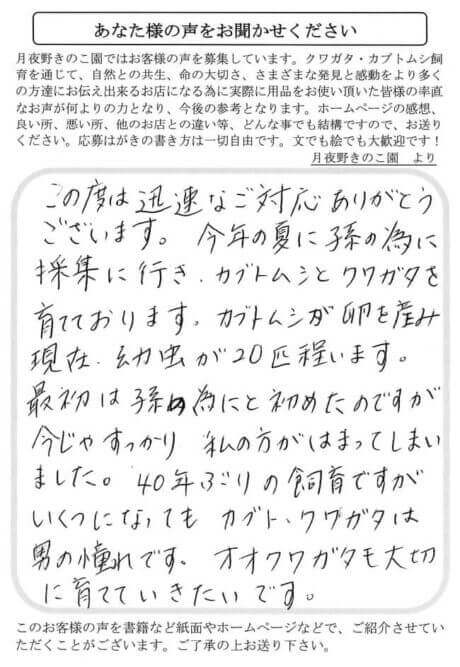 あなた様の声をお聞かせください
月夜野きのこ園ではお客様の声を募集しています。クワガタ・カブトムシ飼
育を通じて、自然との共生、命の大切さ、さまざまな発見と感動をより多く
の方達にお伝え出来るお店になる為に実際に用品をお使い頂いた皆様の率直
なお声が何よりの力となり、今後の参考となります。ホームページの感想、
良い所、悪い所、他のお店との違い等、どんな事でも結構ですので、お送り
ください。応募はがきの書き方は一切自由です。文でも絵でも大歓迎です！
月夜野きのこ園　より
この度は迅速なご対応ありがとう
ございます。今年の夏に孫の為に
採集に行き、カブトムシとクワガタを
育てております。カブトムシが卵を産み
現在、幼虫が20匹程います。
最初は孫の為にと初めたのですが
今じゃすっかり私の方がはまってしまい
ました。40年ぶりの飼育ですが
いくつになってもカブト、クワガタは
男の憧れです。オオクワガタも大切
に育てていきたいです。
このお客様の声を書籍など紙面やホームページなどで、ご紹介させてい
ただくことがございます。ご了承の上お送り下さい。